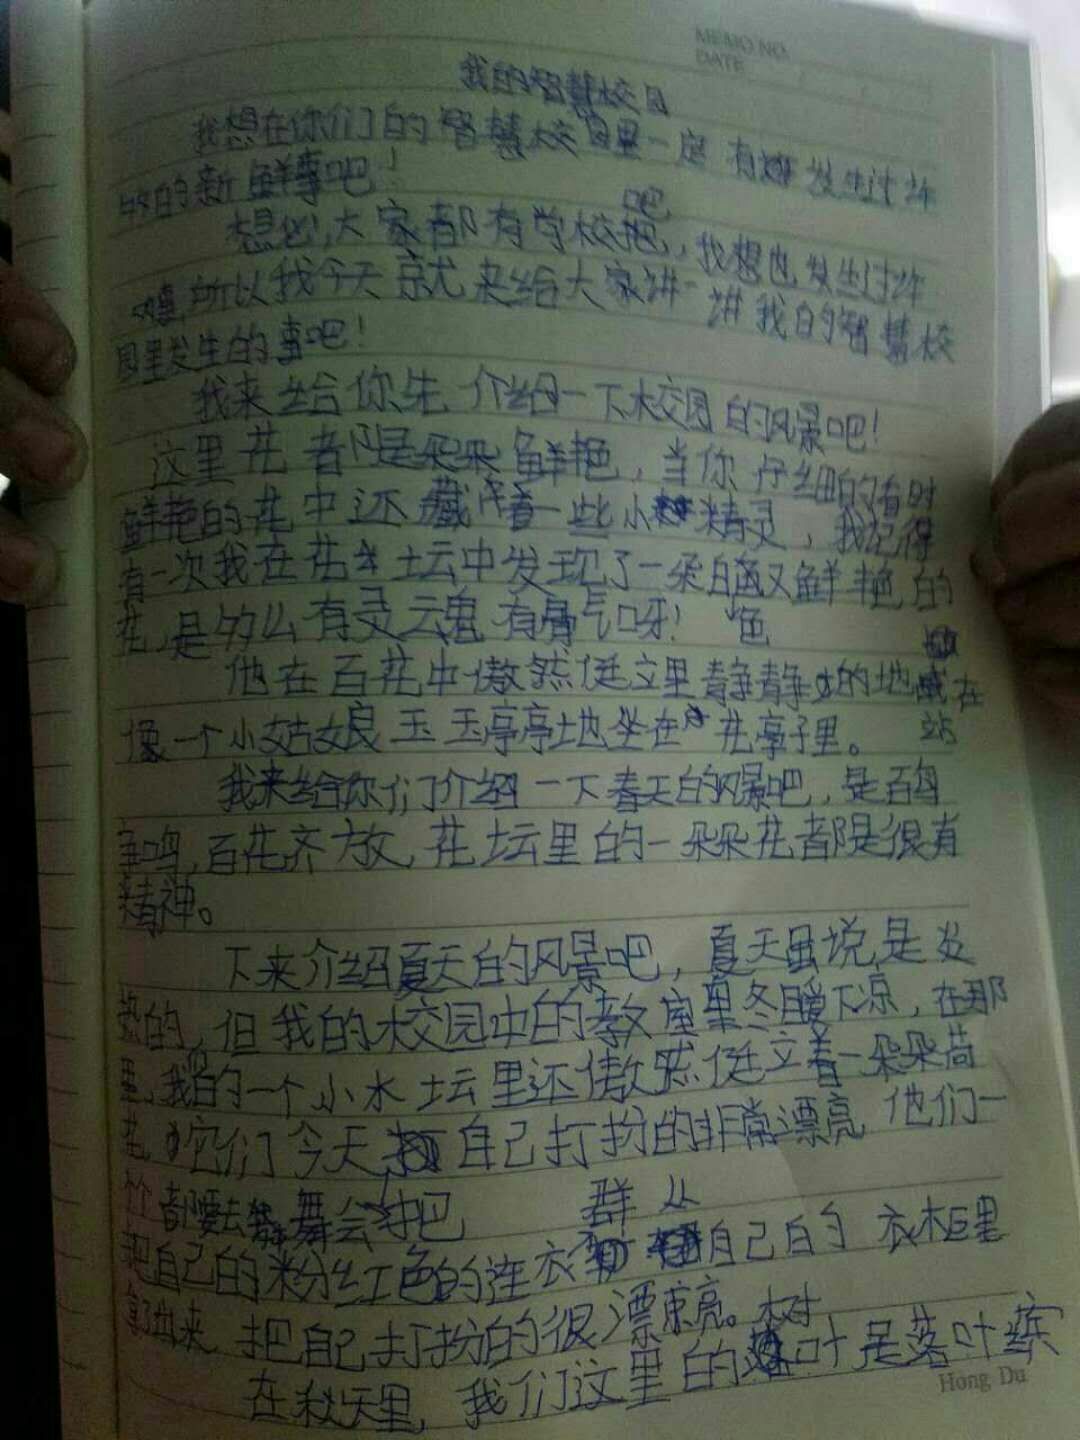 MEMO NO.
DATE
我的智慧校园
我想在你们的智慧校园里一定有发生过许
的新鲜事吧！
想必大家都有学校吧，我想也发生过许
所以我今天就来给大家讲一讲我的智慧校
园里发生的事吧！
我来给你先介绍一下校园的风景吧！
这里花都是朵朵鲜艳，当你仔细的看时
鲜艳的花中还藏着一些小精灵，我记得
有一次我在花坛中发现了一朵又鲜艳的
花，是多么有灵魂有骨气呀！
他在百花中傲然挺立里静静的地站在
像一个小姑娘玉玉亭亭地坐在花亭子里。
我来给你们介绍一下春天的风景吧，是百鸟
争鸣，百花齐放，花坛里的一朵朵花都是很有
精神。
下来介绍夏天的风景吧，夏天虽说是炎
热的，但我的校园中的教室里冬暖下凉，在那
里，我的一个小水坛里还傲然挺立着一朵朵荷
花，它们今天自己打扮的非常漂亮 他们一
个都要去舞会吧
把自己的粉红色的连衣群从自己的衣柜里
拿了出来，把自己打扮的很漂亮。
在秋天里，我们这里的树叶是落叶缤
Hong Du